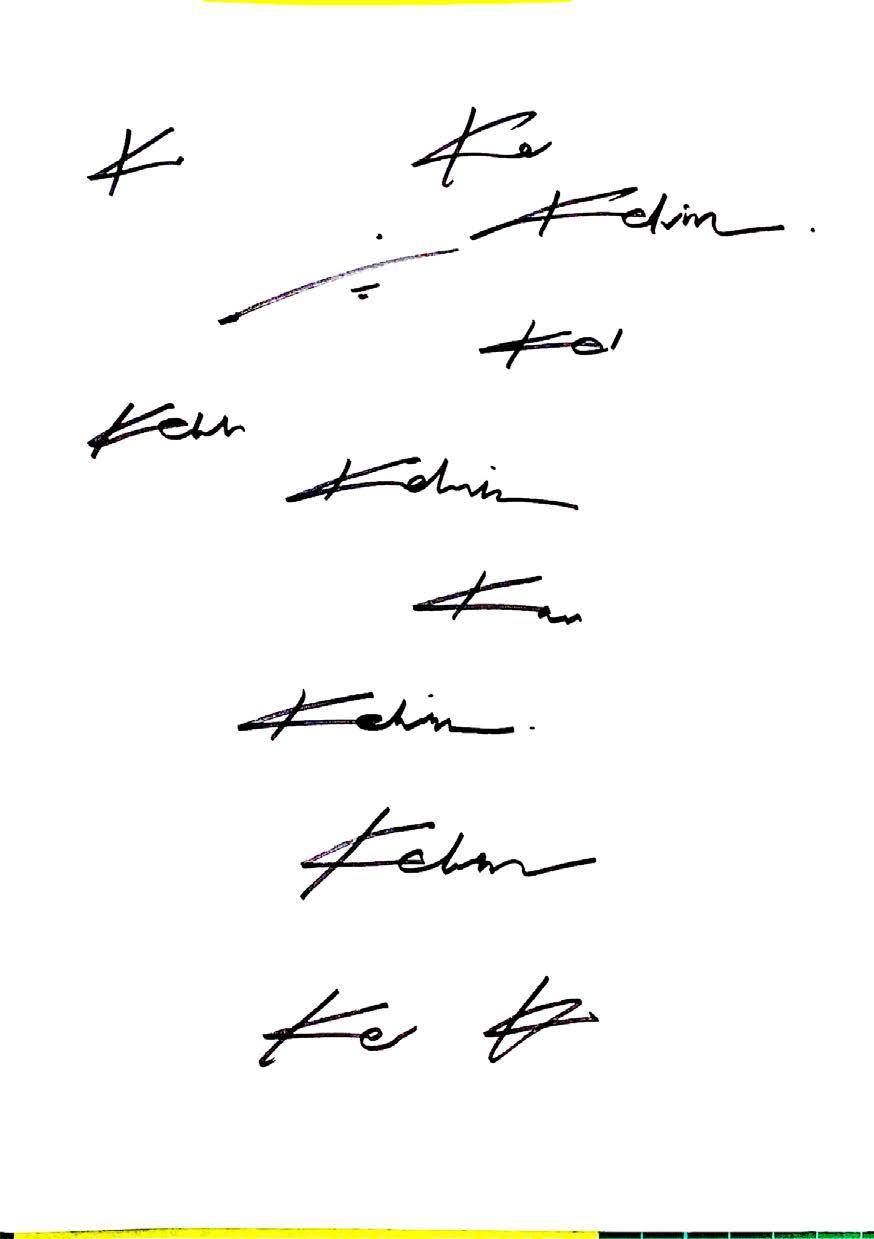 K.
Ke
Kelvin.
Kel
Kelvin
Kelvin
Kelvin.
Kelvin
Ke K